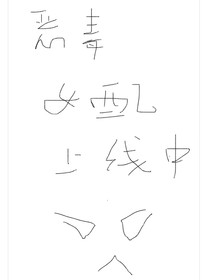 恶毒
女配
上线中